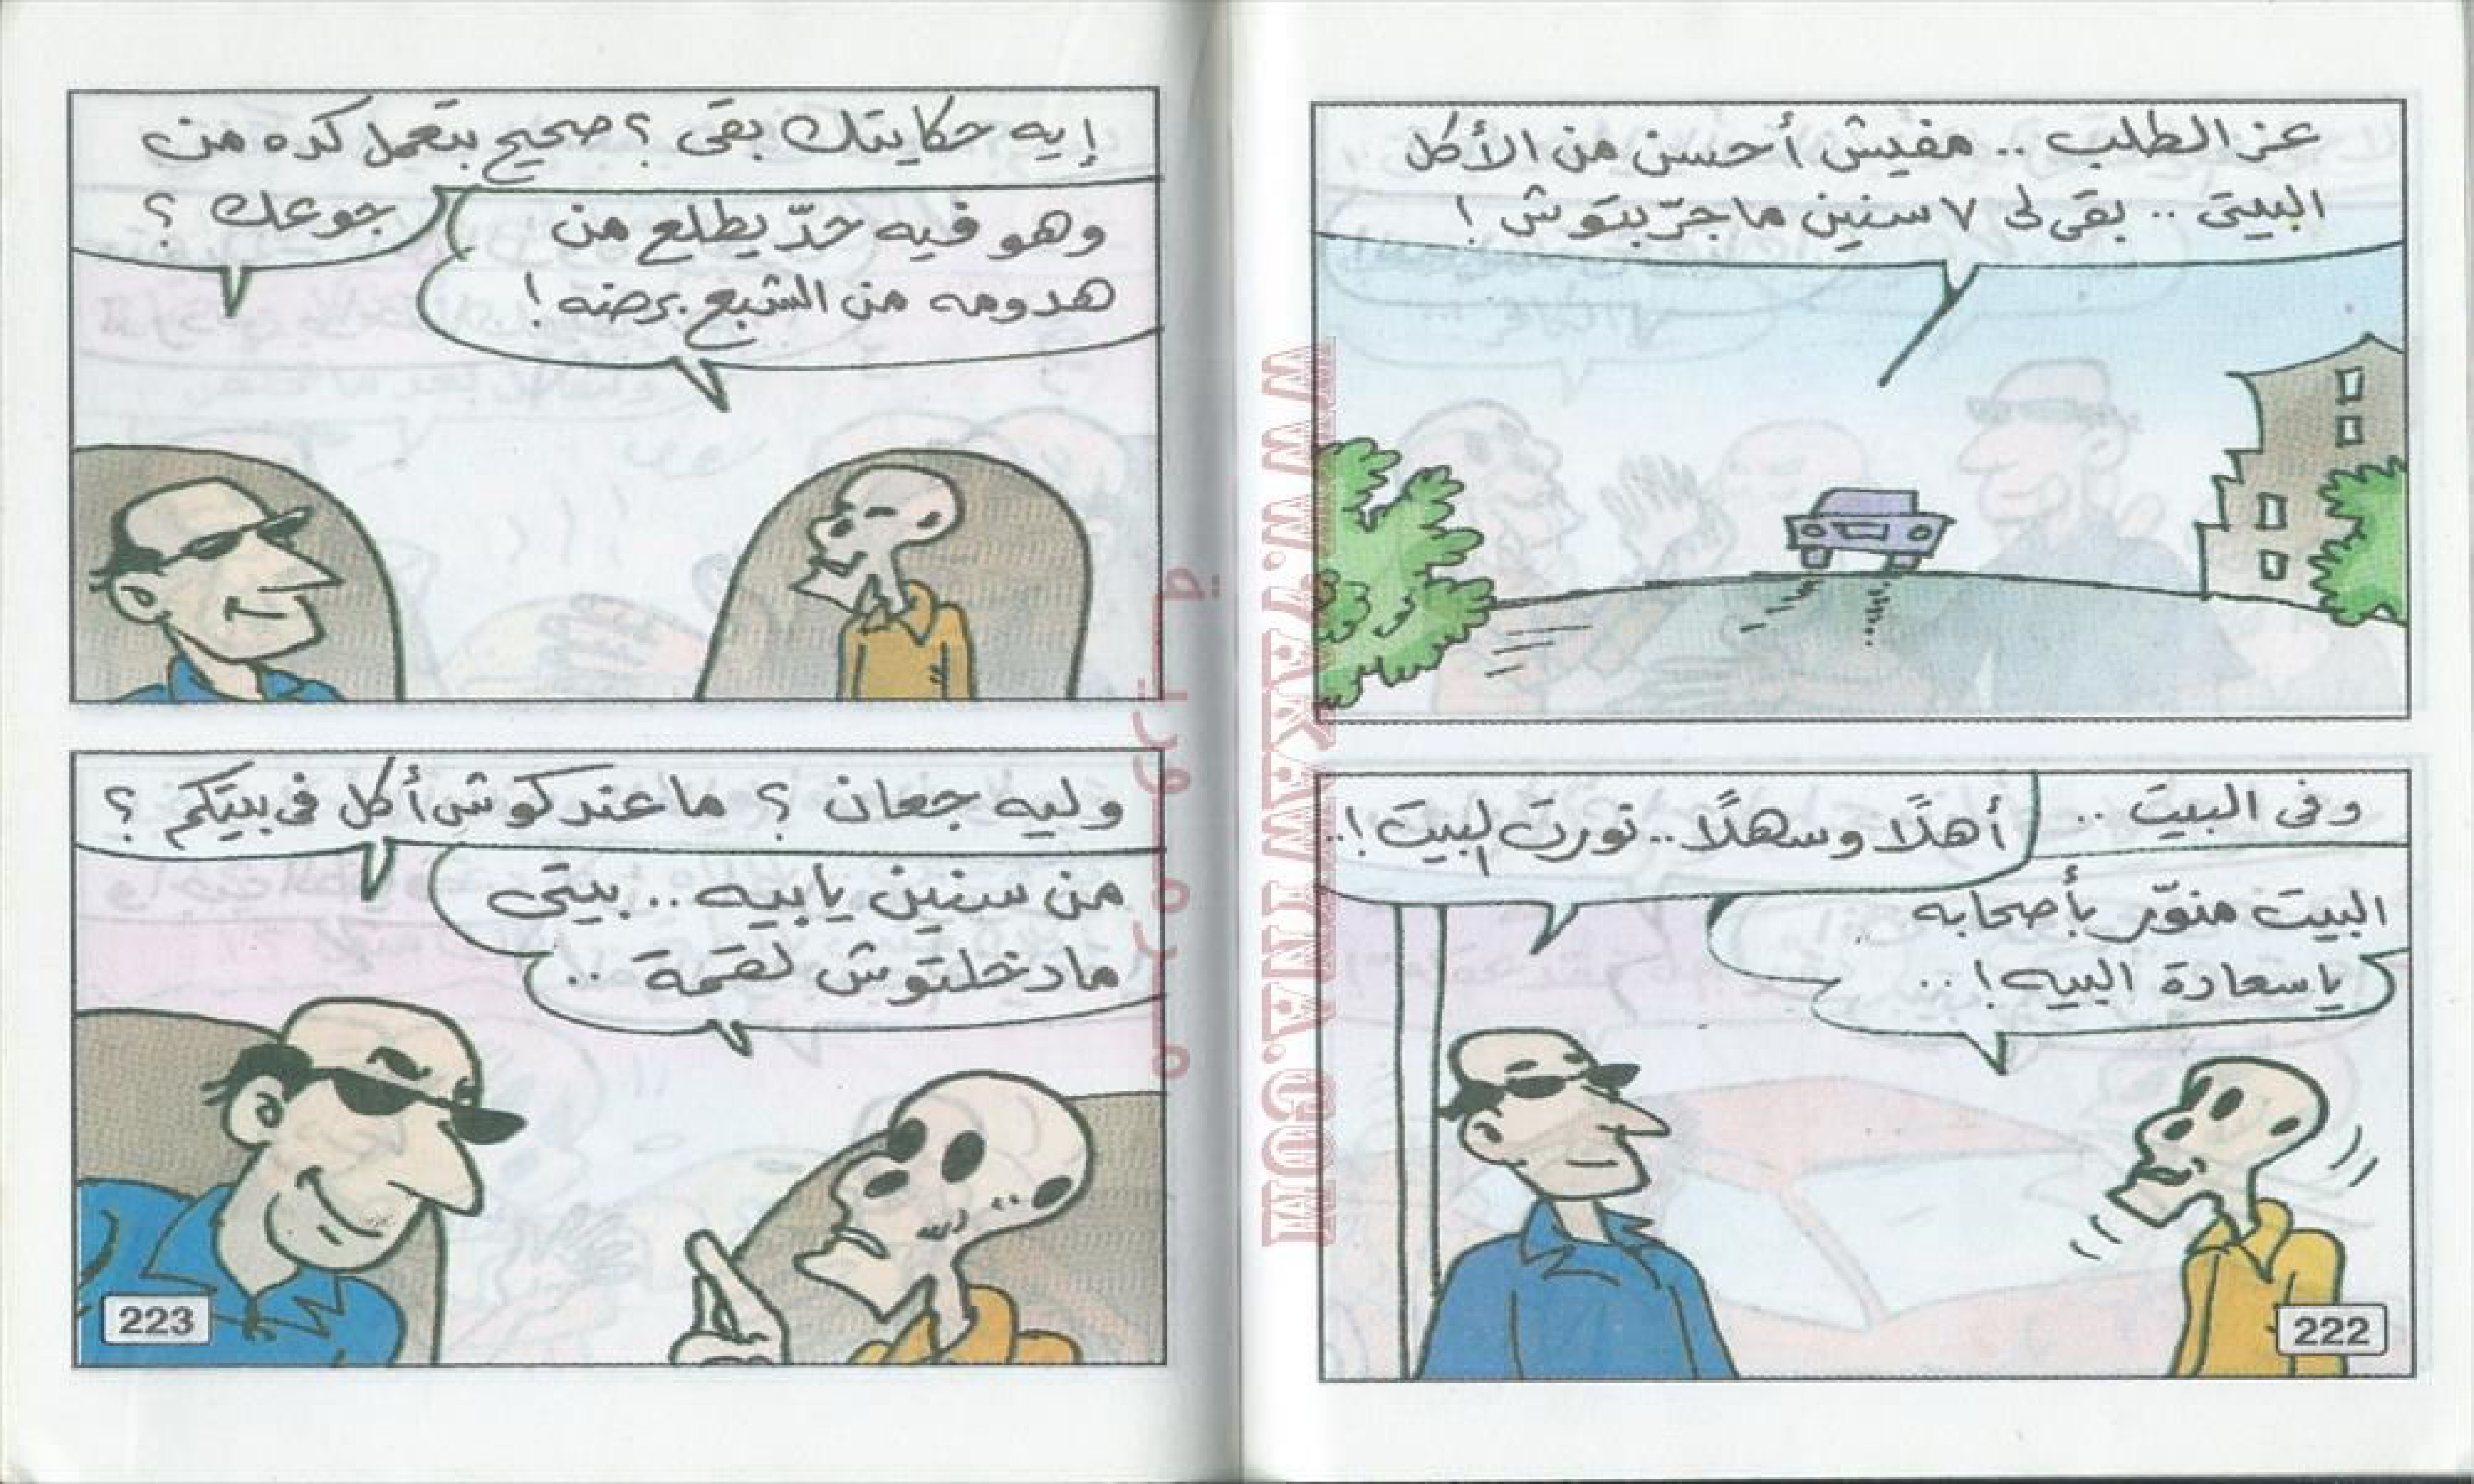 عز الطلب .. مفيش أحسن من الأكل
البيتى .. بقى لى ٧ سنين ما جرّبتوش !
وفى البيت ..
أهلًا وسهلًا .. نورت البيت !..
البيت منوّر بأصحابه
يا سعادة البيه !..
222
إيه حكايتك بقى ؟ صحيح بتعمل كده من
جوعك ؟
وهو فيه حدّ يطلع من
هدومه من الشبع برضه !
وليه جعان ؟ ما عندكوش أكل فى بيتكم ؟
من سنين يا بيه .. بيتى
ما دخلتوش لقمة ..
223